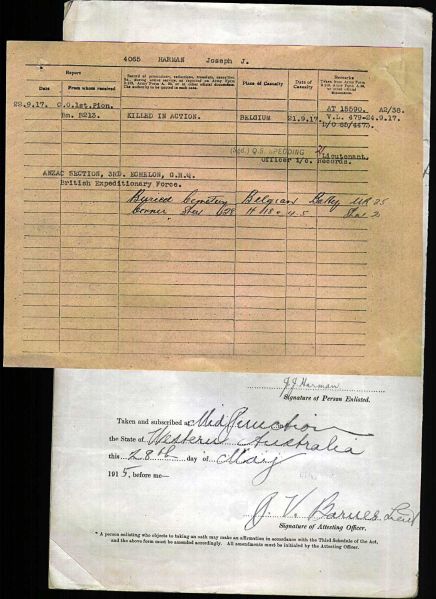 4065 HARMAN Joseph J.
Report
Date
From whom received
Record of promotions, reductions, transfers, casualties, etc., during active service, as reported on Army Form B.213, Army Form A. 36, or in other official documents. The authority to be quoted in each case.
Place of Casualty
Date of Casualty
Remarks
Taken from Army Form B.213, Army Form A. 36, or other official documents.
22.9.17. C.O.1st.Pion. AT 15590. A2/38.
Bn. B213. KILLED IN ACTION. BELGIUM 21.9.17. V.L. 479-24.9.17.
(Sgd.) Q.S. SPEDDING Lieutenant.
Officer i/c. Records.
ANZAC SECTION, 3RD. ECHELON, G.H.Q.
British Expeditionary Force.
Buried Cemetery Belgian Batty
Corner Sheet 28
J J Harman
Signature of Person Enlisted.
Taken and subscribed at Mid Junction
the State of Western Australia
this 28th day of May
1915, before me—
J. V. Barnes Lieut
Signature of Attesting Officer.
* A person enlisting who objects to taking an oath may make an affirmation in accordance with the Third Schedule of the Act,
and the above form must be amended accordingly. All amendments must be initialed by the Attesting Officer.